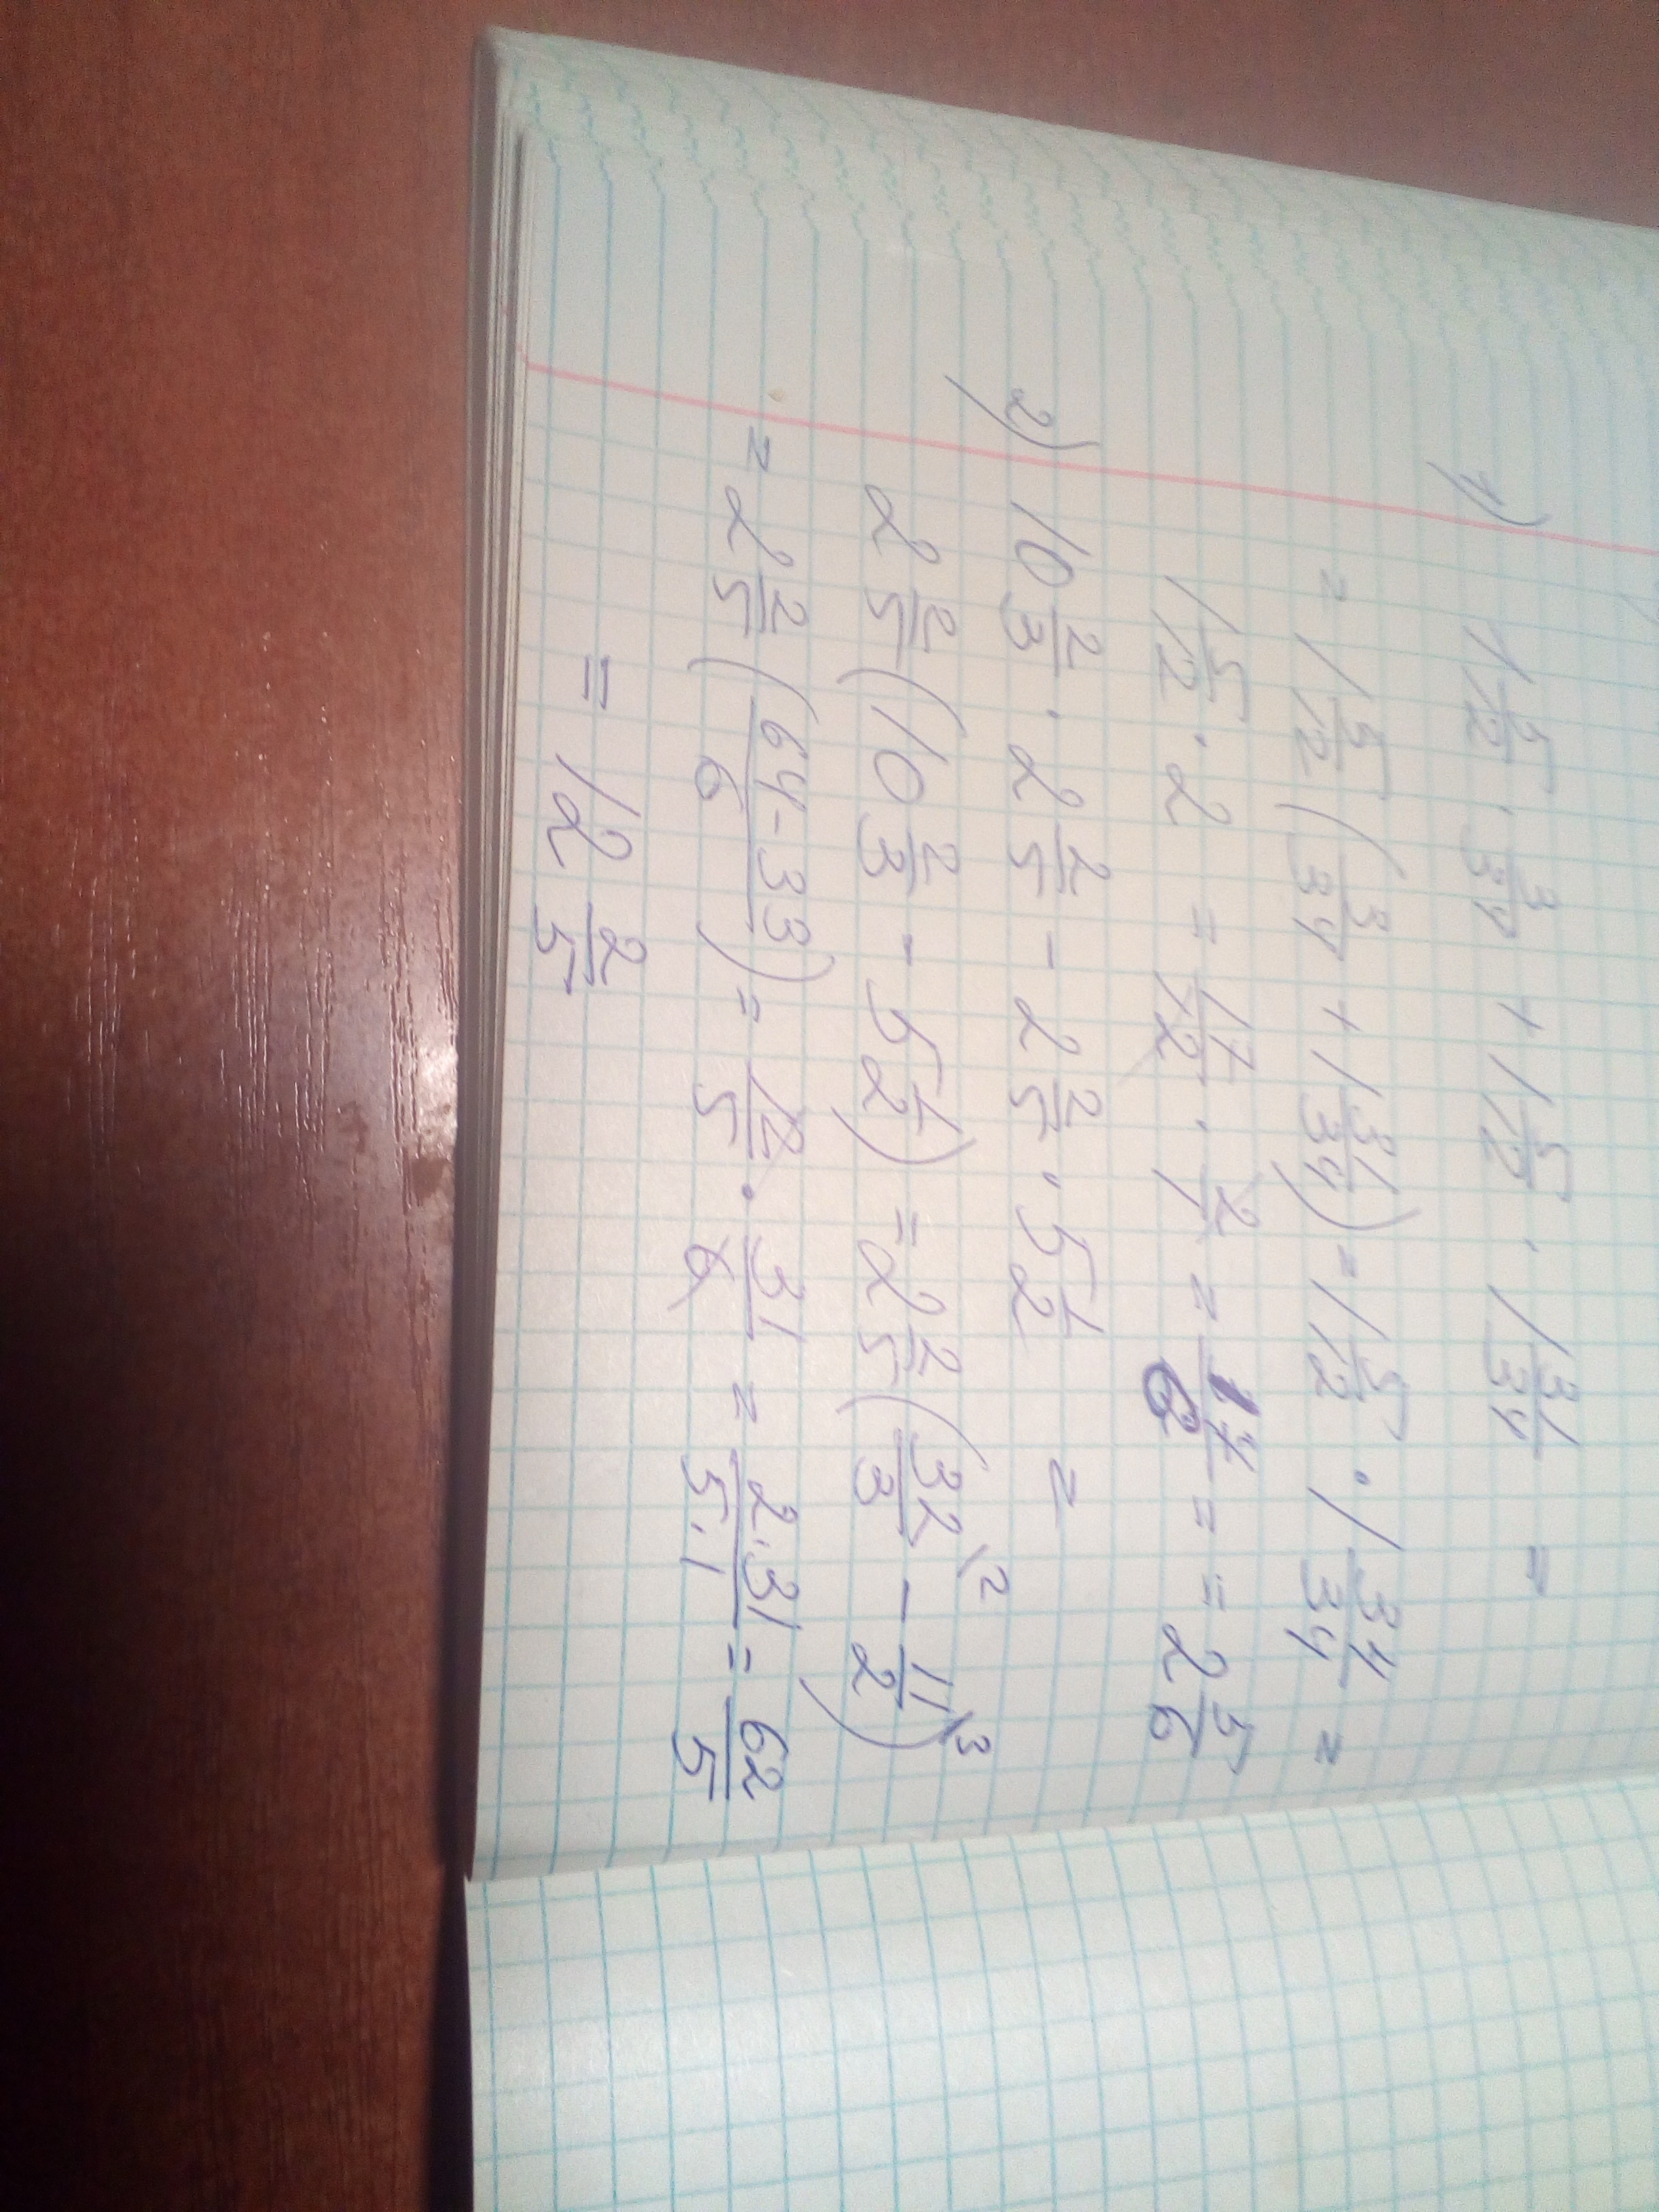 1) 1 5/12 · 3/34 + 1 5/12 · 1 31/34 =
= 1 5/12 (3/34 + 1 31/34) = 1 5/12 · 1 34/34 =
1 5/12 · 2 = 17/12 · 2/1 = 17/6 = = 2 5/6
2) 10 2/3 · 2 2/5 - 2 2/5 · 5 1/2 =
2 2/5 (10 2/3 - 5 1/2) = 2 2/5 (32/3 \2 - 11/2 \3)
= 2 2/5 (64-33/6) = 12/5 · 31/6 = 2·31/5·1 = 62/5
= 12 2/5